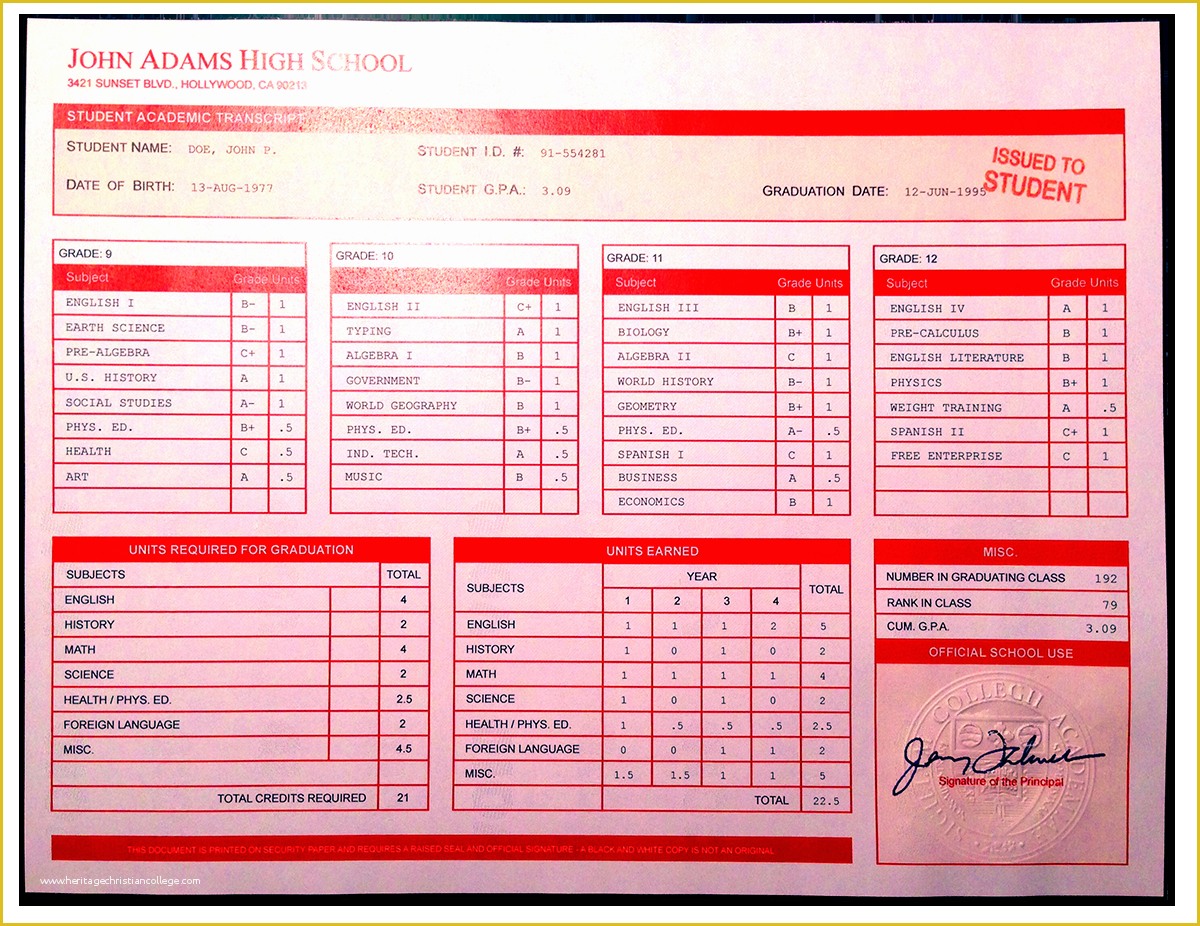 JOHN ADAMS HIGH SCHOOL
3421 SUNSET BLVD., HOLLYWOOD, CA 90213
STUDENT ACADEMIC TRANSCRIPT
STUDENT NAME: DOE, JOHN P. STUDENT I.D. #: 91-554281
DATE OF BIRTH: 13-AUG-1977 STUDENT G.P.A.: 3.09 GRADUATION DATE: 12-JUN-1995
ISSUED TO
STUDENT
GRADE: 9
Subject Grade Units
ENGLISH I B- 1
EARTH SCIENCE B- 1
PRE-ALGEBRA C+ 1
U.S. HISTORY A 1
SOCIAL STUDIES A- 1
PHYS. ED. B+ .5
HEALTH C .5
ART A .5
GRADE: 10
Subject Grade Units
ENGLISH II C+ 1
TYPING A 1
ALGEBRA I B 1
GOVERNMENT B- 1
WORLD GEOGRAPHY B 1
PHYS. ED. B+ .5
IND. TECH. A .5
MUSIC B .5
GRADE: 11
Subject Grade Units
ENGLISH III B 1
BIOLOGY B+ 1
ALGEBRA II C 1
WORLD HISTORY B- 1
GEOMETRY B+ 1
PHYS. ED. A- .5
SPANISH I C 1
BUSINESS A .5
ECONOMICS B 1
GRADE: 12
Subject Grade Units
ENGLISH IV A 1
PRE-CALCULUS B 1
ENGLISH LITERATURE B 1
PHYSICS B+ 1
WEIGHT TRAINING A .5
SPANISH II C+ 1
FREE ENTERPRISE C 1
UNITS REQUIRED FOR GRADUATION
SUBJECTS TOTAL
ENGLISH 4
HISTORY 2
MATH 4
SCIENCE 2
HEALTH / PHYS. ED. 2.5
FOREIGN LANGUAGE 2
MISC. 4.5
TOTAL CREDITS REQUIRED 21
UNITS EARNED
SUBJECTS YEAR TOTAL
1 2 3 4
ENGLISH 1 1 1 2 5
HISTORY 1 0 1 0 2
MATH 1 1 1 1 4
SCIENCE 1 0 1 0 2
HEALTH / PHYS. ED. 1 .5 .5 .5 2.5
FOREIGN LANGUAGE 0 0 1 1 2
MISC. 1.5 1.5 1 1 5
TOTAL 22.5
MISC.
NUMBER IN GRADUATING CLASS 192
RANK IN CLASS 79
CUM. G.P.A. 3.09
OFFICIAL SCHOOL USE
COLLEGII
Signature of the Principal
THIS DOCUMENT IS PRINTED ON SECURITY PAPER AND REQUIRES A RAISED SEAL AND OFFICIAL SIGNATURE - A BLACK AND WHITE COPY IS NOT AN ORIGINAL
www.heritagechristiancollege.com